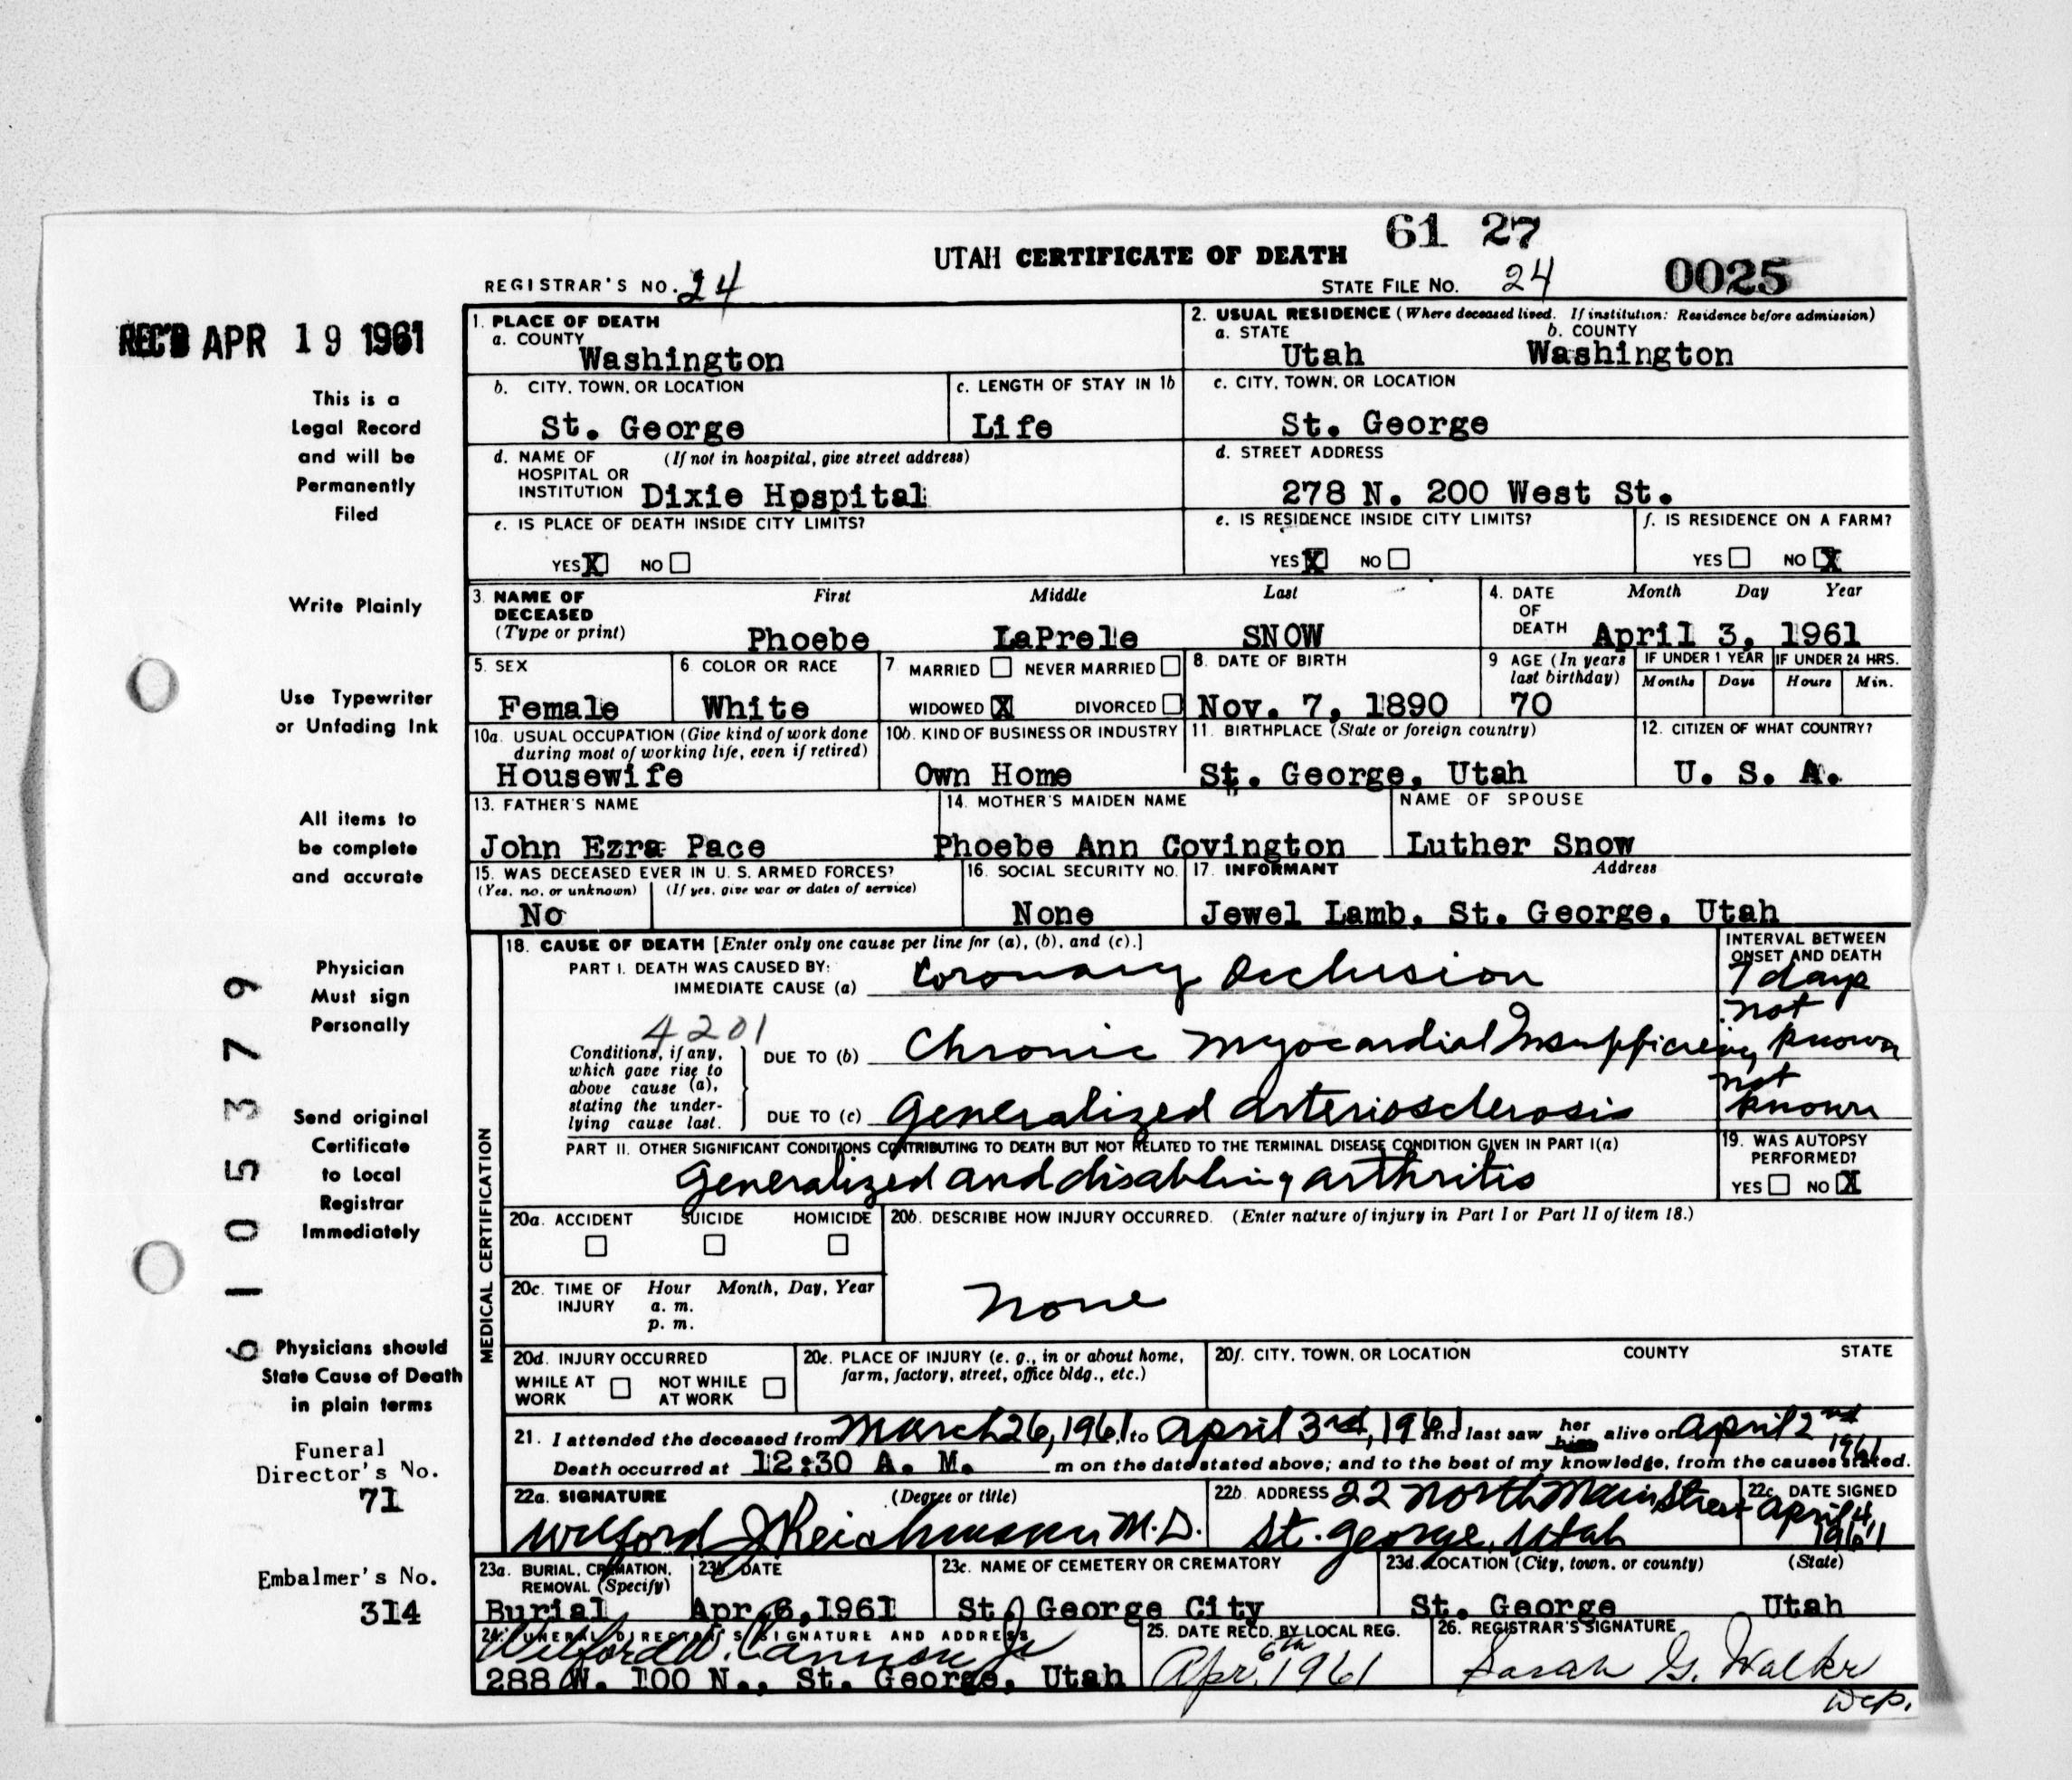 61 27
UTAH CERTIFICATE OF DEATH
REGISTRAR'S NO. 24
STATE FILE NO. 24 0025
REC'D APR 19 1961
This is a
Legal Record
and will be
Permanently
Filed
Write Plainly
Use Typewriter
or Unfading Ink
All items to
be complete
and accurate
Physician
Must sign
Personally
Send original
Certificate
to Local
Registrar
Immediately
Physicians should
State Cause of Death
in plain terms
Funeral
Director's No.
71
Embalmer's No.
314
6 1 0 5 3 7 9
1. PLACE OF DEATH
a. COUNTY
Washington
2. USUAL RESIDENCE (Where deceased lived. If institution: Residence before admission)
a. STATE b. COUNTY
Utah Washington
b. CITY, TOWN, OR LOCATION
St. George
c. LENGTH OF STAY IN 1b
Life
c. CITY, TOWN, OR LOCATION
St. George
d. NAME OF (If not in hospital, give street address)
HOSPITAL OR
INSTITUTION Dixie Hospital
d. STREET ADDRESS
278 N. 200 West St.
e. IS PLACE OF DEATH INSIDE CITY LIMITS?
YES X NO
e. IS RESIDENCE INSIDE CITY LIMITS?
YES X NO
f. IS RESIDENCE ON A FARM?
YES NO X
3. NAME OF First Middle Last
DECEASED
(Type or print) Phoebe LaPrele SNOW
4. DATE Month Day Year
OF
DEATH April 3, 1961
5. SEX
Female
6. COLOR OR RACE
White
7. MARRIED NEVER MARRIED
WIDOWED X DIVORCED
8. DATE OF BIRTH
Nov. 7, 1890
9 AGE (In years
last birthday)
70
IF UNDER 1 YEAR
Months Days
IF UNDER 24 HRS.
Hours Min.
10a. USUAL OCCUPATION (Give kind of work done
during most of working life, even if retired)
Housewife
10b. KIND OF BUSINESS OR INDUSTRY
Own Home
11. BIRTHPLACE (State or foreign country)
St. George, Utah
12. CITIZEN OF WHAT COUNTRY?
U. S. A.
13. FATHER'S NAME
John Ezra Pace
14. MOTHER'S MAIDEN NAME
Phoebe Ann Covington
NAME OF SPOUSE
Luther Snow
15. WAS DECEASED EVER IN U. S. ARMED FORCES?
(Yes, no, or unknown) (If yes, give war or dates of service)
No
16. SOCIAL SECURITY NO.
None
17. INFORMANT Address
Jewel Lamb, St. George, Utah
MEDICAL CERTIFICATION
18. CAUSE OF DEATH [Enter only one cause per line for (a), (b), and (c).]
INTERVAL BETWEEN
ONSET AND DEATH
PART I. DEATH WAS CAUSED BY:
IMMEDIATE CAUSE (a) Coronary Occlusion 7 days
4201
Conditions, if any,
which gave rise to
above cause (a),
stating the under-
lying cause last.
DUE TO (b) Chronic Myocardial Insufficiency not known
DUE TO (c) Generalized arteriosclerosis not known
PART II. OTHER SIGNIFICANT CONDITIONS CONTRIBUTING TO DEATH BUT NOT RELATED TO THE TERMINAL DISEASE CONDITION GIVEN IN PART I(a)
Generalized and disabling arthritis
19. WAS AUTOPSY
PERFORMED?
YES NO X
20a. ACCIDENT SUICIDE HOMICIDE
20b. DESCRIBE HOW INJURY OCCURRED. (Enter nature of injury in Part I or Part II of item 18.)
None
20c. TIME OF Hour Month, Day, Year
INJURY a. m.
p. m.
20d. INJURY OCCURRED
WHILE AT NOT WHILE
WORK AT WORK
20e. PLACE OF INJURY (e. g., in or about home,
farm, factory, street, office bldg., etc.)
20f. CITY, TOWN, OR LOCATION COUNTY STATE
21. I attended the deceased from March 26, 1961 to April 3rd, 1961 and last saw her him alive on April 2nd 1961
Death occurred at 12:30 A. M. m on the date stated above; and to the best of my knowledge, from the causes stated.
22a. SIGNATURE (Degree or title)
Wilford J Reichmann M.D.
22b. ADDRESS 22 North Main Street
St. George, Utah
22c. DATE SIGNED
April 4,
1961
23a. BURIAL, CREMATION,
REMOVAL (Specify)
Burial
23b. DATE
Apr. 6, 1961
23c. NAME OF CEMETERY OR CREMATORY
St. George City
23d. LOCATION (City, town, or county) (State)
St. George Utah
24. FUNERAL DIRECTOR'S SIGNATURE AND ADDRESS
Wilford W. Cannon Jr
288 W. 100 N., St. George, Utah
25. DATE RECD. BY LOCAL REG.
Apr. 6th 1961
26. REGISTRAR'S SIGNATURE
Sarah G. Walker
Dep.